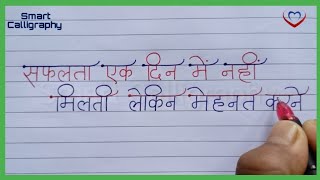 Smart
Calligraphy
सफलता एक दिन में नहीं
मिलती लेकिन मेहनत करने